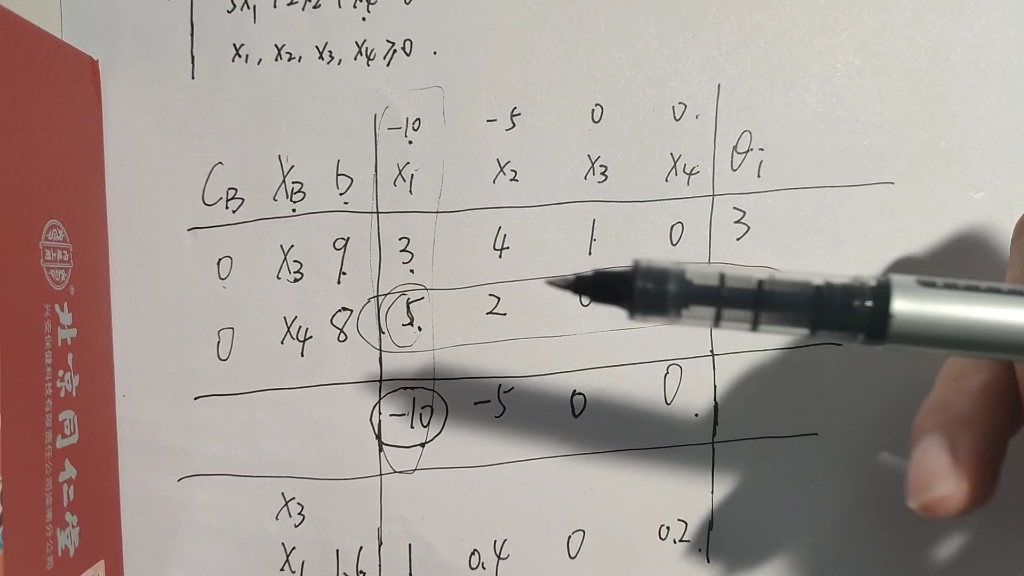 x₁, x₂, x₃, x₄ ≥ 0 .
-10 -5 0 0.
C_B X_B b x₁ x₂ x₃ x₄ θi
0 x₃ 9 3 4 1 0 3
0 x₄ 8 5 2
-10 -5 0 0
x₃
x₁ 1.6 1 0.4 0 0.2
北京同仁堂